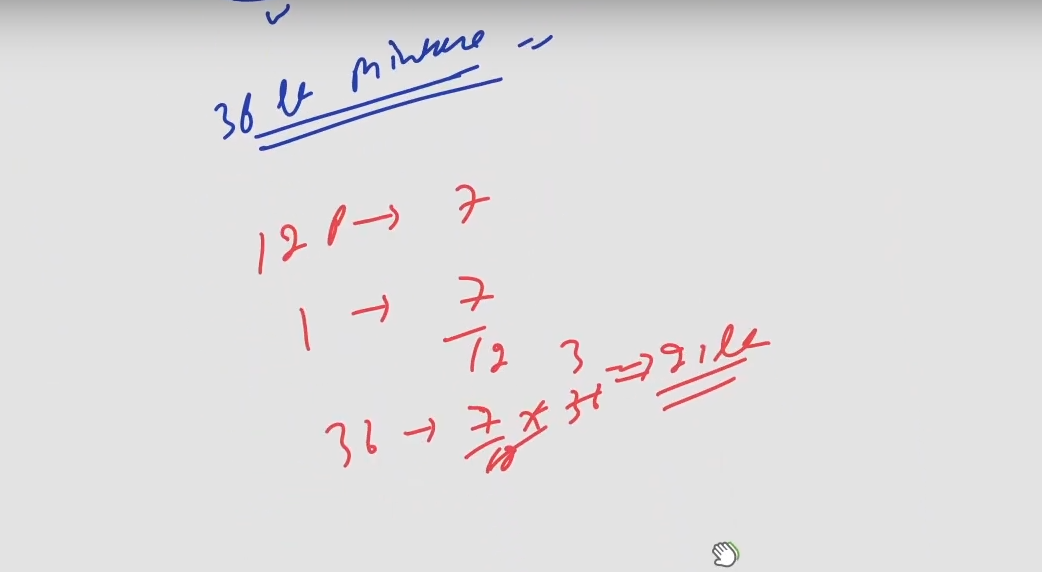 36 lt mixture =
12 P → 7
1 → 7/12
36 → 7/12 × 36 3 ⇒ 21 lt